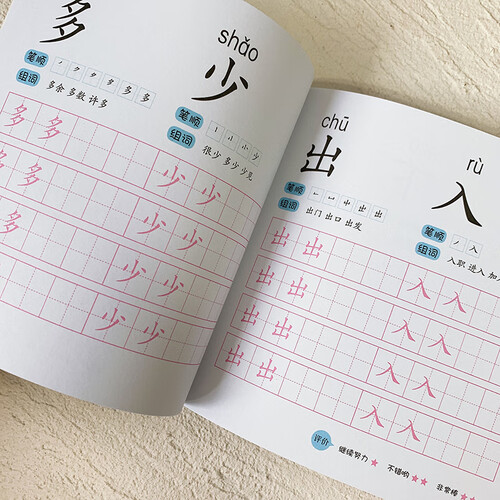 多
笔顺 多
组词 多余 多数 许多
多 多
多 多
多 多
多
shǎo
少
笔顺 少
组词 很少 多少 少见
少 少
少 少
少 少
少 少
chū
出
笔顺 出 出
组词 出门 出口 出发
出 出
出 出
出 出
出 出
rù
入
笔顺 入
组词 入职 进入 加入
入 入
入 入
入 入
入 入
评价 继续努力 不错哟 非常棒